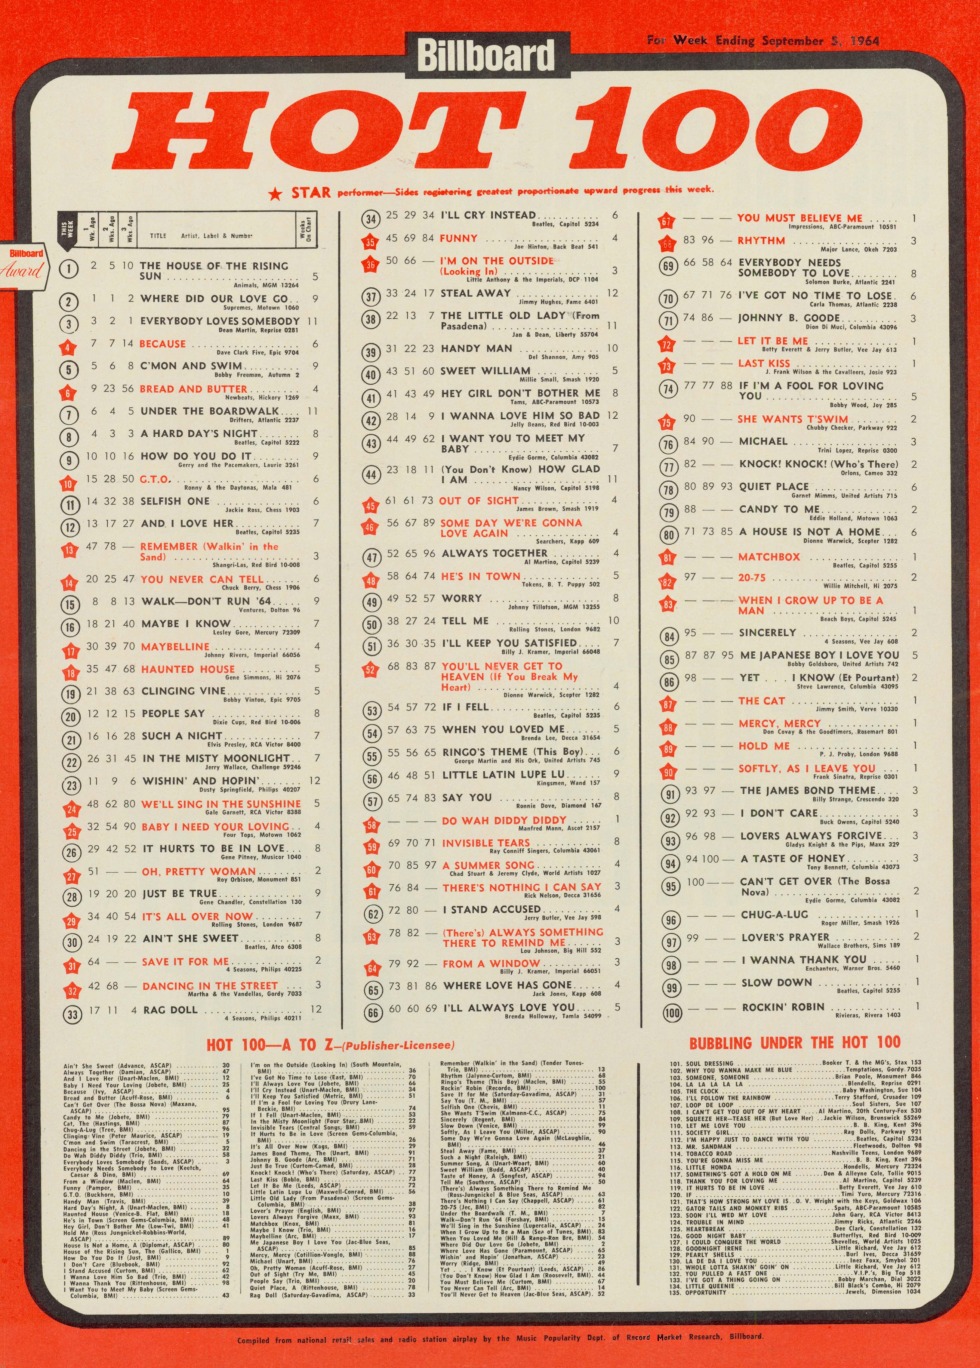 Billboard
For Week Ending September 5, 1964
HOT 100
★ STAR performer—Sides registering greatest proportionate upward progress this week.
Billboard
Award
THIS WEEK
1 Wk. Ago
2 Wks. Ago
3 Wks. Ago
TITLE Artist, Label & Number
Weeks On Chart
1 2 5 10 THE HOUSE OF THE RISING
SUN 5
Animals, MGM 13264
2 1 1 2 WHERE DID OUR LOVE GO 9
Supremes, Motown 1060
3 3 2 1 EVERYBODY LOVES SOMEBODY 11
Dean Martin, Reprise 0281
4 7 7 14 BECAUSE 6
Dave Clark Five, Epic 9704
5 5 6 8 C'MON AND SWIM 9
Bobby Freeman, Autumn 2
6 9 23 56 BREAD AND BUTTER 4
Newbeats, Hickory 1269
7 6 4 5 UNDER THE BOARDWALK 11
Drifters, Atlantic 2237
8 4 3 3 A HARD DAY'S NIGHT 8
Beatles, Capitol 5222
9 10 10 16 HOW DO YOU DO IT 9
Gerry and the Pacemakers, Laurie 3261
10 15 28 50 G.T.O. 6
Ronny & the Daytonas, Mala 481
11 14 32 38 SELFISH ONE 6
Jackie Ross, Chess 1903
12 13 17 27 AND I LOVE HER 7
Beatles, Capitol 5235
13 47 78 — REMEMBER (Walkin' in the
Sand) 3
Shangri-Las, Red Bird 10-008
14 20 25 47 YOU NEVER CAN TELL 6
Chuck Berry, Chess 1906
15 8 8 13 WALK—DON'T RUN '64 9
Ventures, Dolton 96
16 18 21 40 MAYBE I KNOW 7
Lesley Gore, Mercury 72309
17 30 39 70 MAYBELLINE 4
Johnny Rivers, Imperial 66056
18 35 47 68 HAUNTED HOUSE 5
Gene Simmons, Hi 2076
19 21 38 63 CLINGING VINE 5
Bobby Vinton, Epic 9705
20 12 12 15 PEOPLE SAY 8
Dixie Cups, Red Bird 10-006
21 16 16 28 SUCH A NIGHT 7
Elvis Presley, RCA Victor 8400
22 26 31 45 IN THE MISTY MOONLIGHT 7
Jerry Wallace, Challenge 59246
23 11 9 6 WISHIN' AND HOPIN' 12
Dusty Springfield, Philips 40207
24 48 62 80 WE'LL SING IN THE SUNSHINE 5
Gale Garnett, RCA Victor 8388
25 32 54 90 BABY I NEED YOUR LOVING 4
Four Tops, Motown 1062
26 29 42 52 IT HURTS TO BE IN LOVE 8
Gene Pitney, Musicor 1040
27 51 — — OH, PRETTY WOMAN 2
Roy Orbison, Monument 851
28 19 20 20 JUST BE TRUE 9
Gene Chandler, Constellation 130
29 34 40 54 IT'S ALL OVER NOW 7
Rolling Stones, London 9687
30 24 19 22 AIN'T SHE SWEET 8
Beatles, Atco 6308
31 64 — — SAVE IT FOR ME 2
4 Seasons, Philips 40225
32 42 68 — DANCING IN THE STREET 3
Martha & the Vandellas, Gordy 7033
33 17 11 4 RAG DOLL 12
4 Seasons, Philips 40211
34 25 29 34 I'LL CRY INSTEAD 6
Beatles, Capitol 5234
35 45 69 84 FUNNY 4
Joe Hinton, Back Beat 541
36 50 66 — I'M ON THE OUTSIDE
(Looking In) 3
Little Anthony & the Imperials, DCP 1104
37 33 24 17 STEAL AWAY 12
Jimmy Hughes, Fame 6401
38 22 13 7 THE LITTLE OLD LADY (From
Pasadena) 11
Jan & Dean, Liberty 55704
39 31 22 23 HANDY MAN 10
Del Shannon, Amy 905
40 43 51 60 SWEET WILLIAM 5
Millie Small, Smash 1920
41 41 43 49 HEY GIRL DON'T BOTHER ME 8
Tams, ABC-Paramount 10573
42 28 14 9 I WANNA LOVE HIM SO BAD 12
Jelly Beans, Red Bird 10-003
43 44 49 62 I WANT YOU TO MEET MY
BABY 7
Eydie Gorme, Columbia 43082
44 23 18 11 (You Don't Know) HOW GLAD
I AM 11
Nancy Wilson, Capitol 5198
45 61 61 73 OUT OF SIGHT 4
James Brown, Smash 1919
46 56 67 89 SOME DAY WE'RE GONNA
LOVE AGAIN 4
Searchers, Kapp 609
47 52 65 96 ALWAYS TOGETHER 4
Al Martino, Capitol 5239
48 58 64 74 HE'S IN TOWN 5
Tokens, B. T. Puppy 502
49 49 52 57 WORRY 8
Johnny Tillotson, MGM 13255
50 38 27 24 TELL ME 10
Rolling Stones, London 9682
51 36 30 35 I'LL KEEP YOU SATISFIED 7
Billy J. Kramer, Imperial 66048
52 68 83 87 YOU'LL NEVER GET TO
HEAVEN (If You Break My
Heart) 4
Dionne Warwick, Scepter 1282
53 54 57 72 IF I FELL 6
Beatles, Capitol 5235
54 57 63 75 WHEN YOU LOVED ME 5
Brenda Lee, Decca 31654
55 55 56 65 RINGO'S THEME (This Boy) 6
George Martin and His Ork, United Artists 745
56 46 48 51 LITTLE LATIN LUPE LU 9
Kingsmen, Wand 157
57 65 74 83 SAY YOU 8
Ronnie Dove, Diamond 167
58 — — — DO WAH DIDDY DIDDY 1
Manfred Mann, Ascot 2157
59 69 70 71 INVISIBLE TEARS 8
Ray Conniff Singers, Columbia 43061
60 70 85 97 A SUMMER SONG 4
Chad Stuart & Jeremy Clyde, World Artists 1027
61 76 84 — THERE'S NOTHING I CAN SAY 3
Rick Nelson, Decca 31656
62 72 80 — I STAND ACCUSED 4
Jerry Butler, Vee Jay 598
63 78 82 — (There's) ALWAYS SOMETHING
THERE TO REMIND ME 3
Lou Johnson, Big Hill 552
64 79 92 — FROM A WINDOW 3
Billy J. Kramer, Imperial 66051
65 73 81 86 WHERE LOVE HAS GONE 4
Jack Jones, Kapp 608
66 60 60 69 I'LL ALWAYS LOVE YOU 5
Brenda Holloway, Tamla 54099
67 — — — YOU MUST BELIEVE ME 1
Impressions, ABC-Paramount 10581
68 83 96 — RHYTHM 3
Major Lance, Okeh 7203
69 66 58 64 EVERYBODY NEEDS
SOMEBODY TO LOVE 8
Solomon Burke, Atlantic 2241
70 67 71 76 I'VE GOT NO TIME TO LOSE 6
Carla Thomas, Atlantic 2238
71 74 86 — JOHNNY B. GOODE 3
Dion Di Muci, Columbia 43096
72 — — — LET IT BE ME 1
Betty Everett & Jerry Butler, Vee Jay 613
73 — — — LAST KISS 1
J. Frank Wilson & the Cavaliers, Josie 923
74 77 77 88 IF I'M A FOOL FOR LOVING
YOU 5
Bobby Wood, Joy 285
75 90 — — SHE WANTS T'SWIM 2
Chubby Checker, Parkway 922
76 84 90 — MICHAEL 3
Trini Lopez, Reprise 0300
77 82 — — KNOCK! KNOCK! (Who's There) 2
Orlons, Cameo 332
78 80 89 93 QUIET PLACE 6
Garnet Mimms, United Artists 715
79 88 — — CANDY TO ME 2
Eddie Holland, Motown 1063
80 71 73 85 A HOUSE IS NOT A HOME 6
Dionne Warwick, Scepter 1282
81 — — — MATCHBOX 1
Beatles, Capitol 5255
82 97 — — 20-75 2
Willie Mitchell, Hi 2075
83 — — — WHEN I GROW UP TO BE A
MAN 1
Beach Boys, Capitol 5245
84 95 — — SINCERELY 2
4 Seasons, Vee Jay 608
85 87 87 95 ME JAPANESE BOY I LOVE YOU 5
Bobby Goldsboro, United Artists 742
86 98 — — YET . . . I KNOW (Et Pourtant) 2
Steve Lawrence, Columbia 43095
87 — — — THE CAT 1
Jimmy Smith, Verve 10330
88 — — — MERCY, MERCY 1
Don Covay & the Goodtimers, Rosemart 801
89 — — — HOLD ME 1
P. J. Proby, London 9688
90 — — — SOFTLY, AS I LEAVE YOU 1
Frank Sinatra, Reprise 0301
91 93 97 — THE JAMES BOND THEME 3
Billy Strange, Crescendo 320
92 92 93 — I DON'T CARE 3
Buck Owens, Capitol 5240
93 96 98 — LOVERS ALWAYS FORGIVE 3
Gladys Knight & the Pips, Maxx 329
94 94 100 — A TASTE OF HONEY 3
Tony Bennett, Columbia 43073
95 100 — — CAN'T GET OVER (The Bossa
Nova) 2
Eydie Gorme, Columbia 43082
96 — — — CHUG-A-LUG 1
Roger Miller, Smash 1926
97 99 — — LOVER'S PRAYER 2
Wallace Brothers, Sims 189
98 — — — I WANNA THANK YOU 1
Enchanters, Warner Bros. 5460
99 — — — SLOW DOWN 1
Beatles, Capitol 5255
100 — — — ROCKIN' ROBIN 1
Rivieras, Riviera 1403
HOT 100—A TO Z—(Publisher-Licensee)
Ain't She Sweet (Advance, ASCAP) 30
Always Together (Damian, ASCAP) 47
And I Love Her (Unart-Maclen, BMI) 12
Baby I Need Your Loving (Jobete, BMI) 25
Because (Ivy, ASCAP) 4
Bread and Butter (Acuff-Rose, BMI) 6
Can't Get Over (The Bossa Nova) (Maxana,
ASCAP) 95
Candy to Me (Jobete, BMI) 79
Cat, The (Hastings, BMI) 87
Chug-A-Lug (Tree, BMI) 96
Clinging Vine (Peter Maurice, ASCAP) 19
C'mon and Swim (Taracrest, BMI) 5
Dancing in the Street (Jobete, BMI) 32
Do Wah Diddy Diddy (Trio, BMI) 58
Everybody Loves Somebody (Sands, ASCAP) 3
Everybody Needs Somebody to Love (Keetch,
Caesar & Dino, BMI) 69
From a Window (Maclen, BMI) 64
Funny (Pamper, BMI) 35
G.T.O. (Buckhorn, BMI) 10
Handy Man (Travis, BMI) 39
Hard Day's Night, A (Unart-Maclen, BMI) 8
Haunted House (Venice-B. Flat, BMI) 18
He's in Town (Screen Gems-Columbia, BMI) 48
Hey Girl, Don't Bother Me (Low-Twi, BMI) 41
Hold Me (Ross Jungnickel-Robbins-World,
ASCAP) 89
House Is Not a Home, A (Diplomat, ASCAP) 80
House of the Rising Sun, The (Gallico, BMI) 1
How Do You Do It (Just, BMI) 9
I Don't Care (Bluebook, BMI) 92
I Stand Accused (Curtom, BMI) 62
I Wanna Love Him So Bad (Trio, BMI) 42
I Wanna Thank You (Rittenhouse, BMI) 98
I Want You to Meet My Baby (Screen Gems-
Columbia, BMI) 43
I'm on the Outside (Looking In) (South Mountain,
BMI) 36
I've Got No Time to Lose (East, BMI) 70
I'll Always Love You (Jobete, BMI) 66
I'll Cry Instead (Unart-Maclen, BMI) 34
I'll Keep You Satisfied (Metric, BMI) 51
If I'm a Fool for Loving You (Drury Lane-
Beckie, BMI) 74
If I Fell (Unart-Maclen, BMI) 53
In the Misty Moonlight (Four Star, BMI) 22
Invisible Tears (Central Songs, BMI) 59
It Hurts to Be in Love (Screen Gems-Columbia,
BMI) 26
It's All Over Now (Kags, BMI) 29
James Bond Theme, The (Unart, BMI) 91
Johnny B. Goode (Arc, BMI) 71
Just Be True (Curtom-Camad, BMI) 28
Knock! Knock! (Who's There) (Saturday, ASCAP) 77
Last Kiss (Boblo, BMI) 73
Let It Be Me (Leeds, ASCAP) 72
Little Latin Lupe Lu (Maxwell-Conrad, BMI) 56
Little Old Lady (From Pasadena) (Screen Gems-
Columbia, BMI) 38
Lover's Prayer (English, BMI) 97
Lovers Always Forgive (Maxx, BMI) 93
Matchbox (Knox, BMI) 81
Maybe I Know (Trio, BMI) 16
Maybelline (Arc, BMI) 17
Me Japanese Boy I Love You (Jac-Blue Seas,
ASCAP) 85
Mercy, Mercy (Cotillion-Vonglo, BMI) 88
Michael (Unart, BMI) 76
Oh, Pretty Woman (Acuff-Rose, BMI) 27
Out of Sight (Try Me, BMI) 45
People Say (Trio, BMI) 20
Quiet Place, A (Rittenhouse, BMI) 78
Rag Doll (Saturday-Gavadima, ASCAP) 33
Remember (Walkin' in the Sand) (Tender Tunes-
Trio, BMI) 13
Rhythm (Jalynne-Curtom, BMI) 68
Ringo's Theme (This Boy) (Maclen, BMI) 55
Rockin' Robin (Recordo, BMI) 100
Save It for Me (Saturday-Gavadima, ASCAP) 31
Say You (T. M., BMI) 57
Selfish One (Chevis, BMI) 11
She Wants T'Swim (Kalmann-C.C., ASCAP) 75
Sincerely (Regent, BMI) 84
Slow Down (Venice, BMI) 99
Softly, As I Leave You (Miller, ASCAP) 90
Some Day We're Gonna Love Again (McLaughlin,
BMI) 46
Steal Away (Fame, BMI) 37
Such a Night (Raleigh, BMI) 21
Summer Song, A (Unart-Woart, BMI) 60
Sweet William (Budd, ASCAP) 40
Taste of Honey, A (Songfest, ASCAP) 94
Tell Me (Southern, ASCAP) 50
(There's) Always Something There to Remind Me
(Ross-Jungnickel & Blue Seas, ASCAP) 63
There's Nothing I Can Say (Chappell, ASCAP) 61
20-75 (Jec, BMI) 82
Under the Boardwalk (T. M., BMI) 7
Walk—Don't Run '64 (Forshay, BMI) 15
We'll Sing in the Sunshine (Lupercalia, ASCAP) 24
When I Grow Up to Be a Man (Sea of Tunes, BMI) 83
When You Loved Me (Hill & Range-Ron Bre, BMI) 54
Where Did Our Love Go (Jobete, BMI) 2
Where Love Has Gone (Paramount, ASCAP) 65
Wishin' and Hopin' (Jonathan, ASCAP) 23
Worry (Ridge, BMI) 49
Yet . . . I Know (Et Pourtant) (Leeds, ASCAP) 86
(You Don't Know) How Glad I Am (Roosevelt, BMI) 44
You Must Believe Me (Curtom, BMI) 67
You Never Can Tell (Arc, BMI) 14
You'll Never Get to Heaven (Jac-Blue Seas, ASCAP) 52
BUBBLING UNDER THE HOT 100
101. SOUL DRESSING Booker T. & the MG's, Stax 153
102. WHY YOU WANNA MAKE ME BLUE Temptations, Gordy 7035
103. SOMEONE, SOMEONE Brian Poole, Monument 846
104. LA LA LA LA LA Blendells, Reprise 0291
105. THE CLOCK Baby Washington, Sue 104
106. I'LL FOLLOW THE RAINBOW Terry Stafford, Crusader 109
107. LOOP DE LOOP Soul Sisters, Sue 107
108. I CAN'T GET YOU OUT OF MY HEART Al Martino, 20th Century-Fox 530
109. SQUEEZE HER—TEASE HER (But Love Her) Jackie Wilson, Brunswick 55269
110. LET ME LOVE YOU B. B. King, Kent 396
111. SOCIETY GIRL Rag Dolls, Parkway 921
112. I'M HAPPY JUST TO DANCE WITH YOU Beatles, Capitol 5234
113. MR. SANDMAN Fleetwoods, Dolton 98
114. TOBACCO ROAD Nashville Teens, London 9689
115. YOU'RE GONNA MISS ME B. B. King, Kent 396
116. LITTLE HONDA Hondells, Mercury 72324
117. SOMETHING'S GOT A HOLD ON ME Don & Alleyne Cole, Tollie 9015
118. THANK YOU FOR LOVING ME Sapphires, ABC-Paramount
119. IT HURTS TO BE IN LOVE Betty Everett, Vee Jay 610
120. IF Timi Yuro, Mercury 72316
121. THAT'S HOW STRONG MY LOVE IS O. V. Wright with the Keys, Goldwax 106
122. GATOR TAILS AND MONKEY RIBS Spats, ABC-Paramount 10585
123. SOON I'LL WED MY LOVE John Gary, RCA Victor 8413
124. TROUBLE IN MIND Jimmy Ricks, Atlantic 2246
125. HEARTBREAK Dee Clark, Constellation 132
126. GOOD NIGHT BABY Butterflys, Red Bird 10-009
127. I COULD CONQUER THE WORLD Shevelles, World Artists 1025
128. GOODNIGHT IRENE Little Richard, Vee Jay 612
129. PEARLY SHELLS Burl Ives, Decca 31659
130. LA DE DA I LOVE YOU Inez Foxx, Symbol 201
131. WHOLE LOTTA SHAKIN' GOIN' ON Little Richard, Vee Jay 612
132. YOU PULLED A FAST ONE V.I.P.'s, Big Top 518
133. I'VE GOT A THING GOING ON Bobby Marchan, Dial 3022
134. LITTLE QUEENIE Bill Black's Combo, Hi 2079
135. OPPORTUNITY Jewels, Dimension 1034
Compiled from national retail sales and radio station airplay by the Music Popularity Dept. of Record Market Research, Billboard.